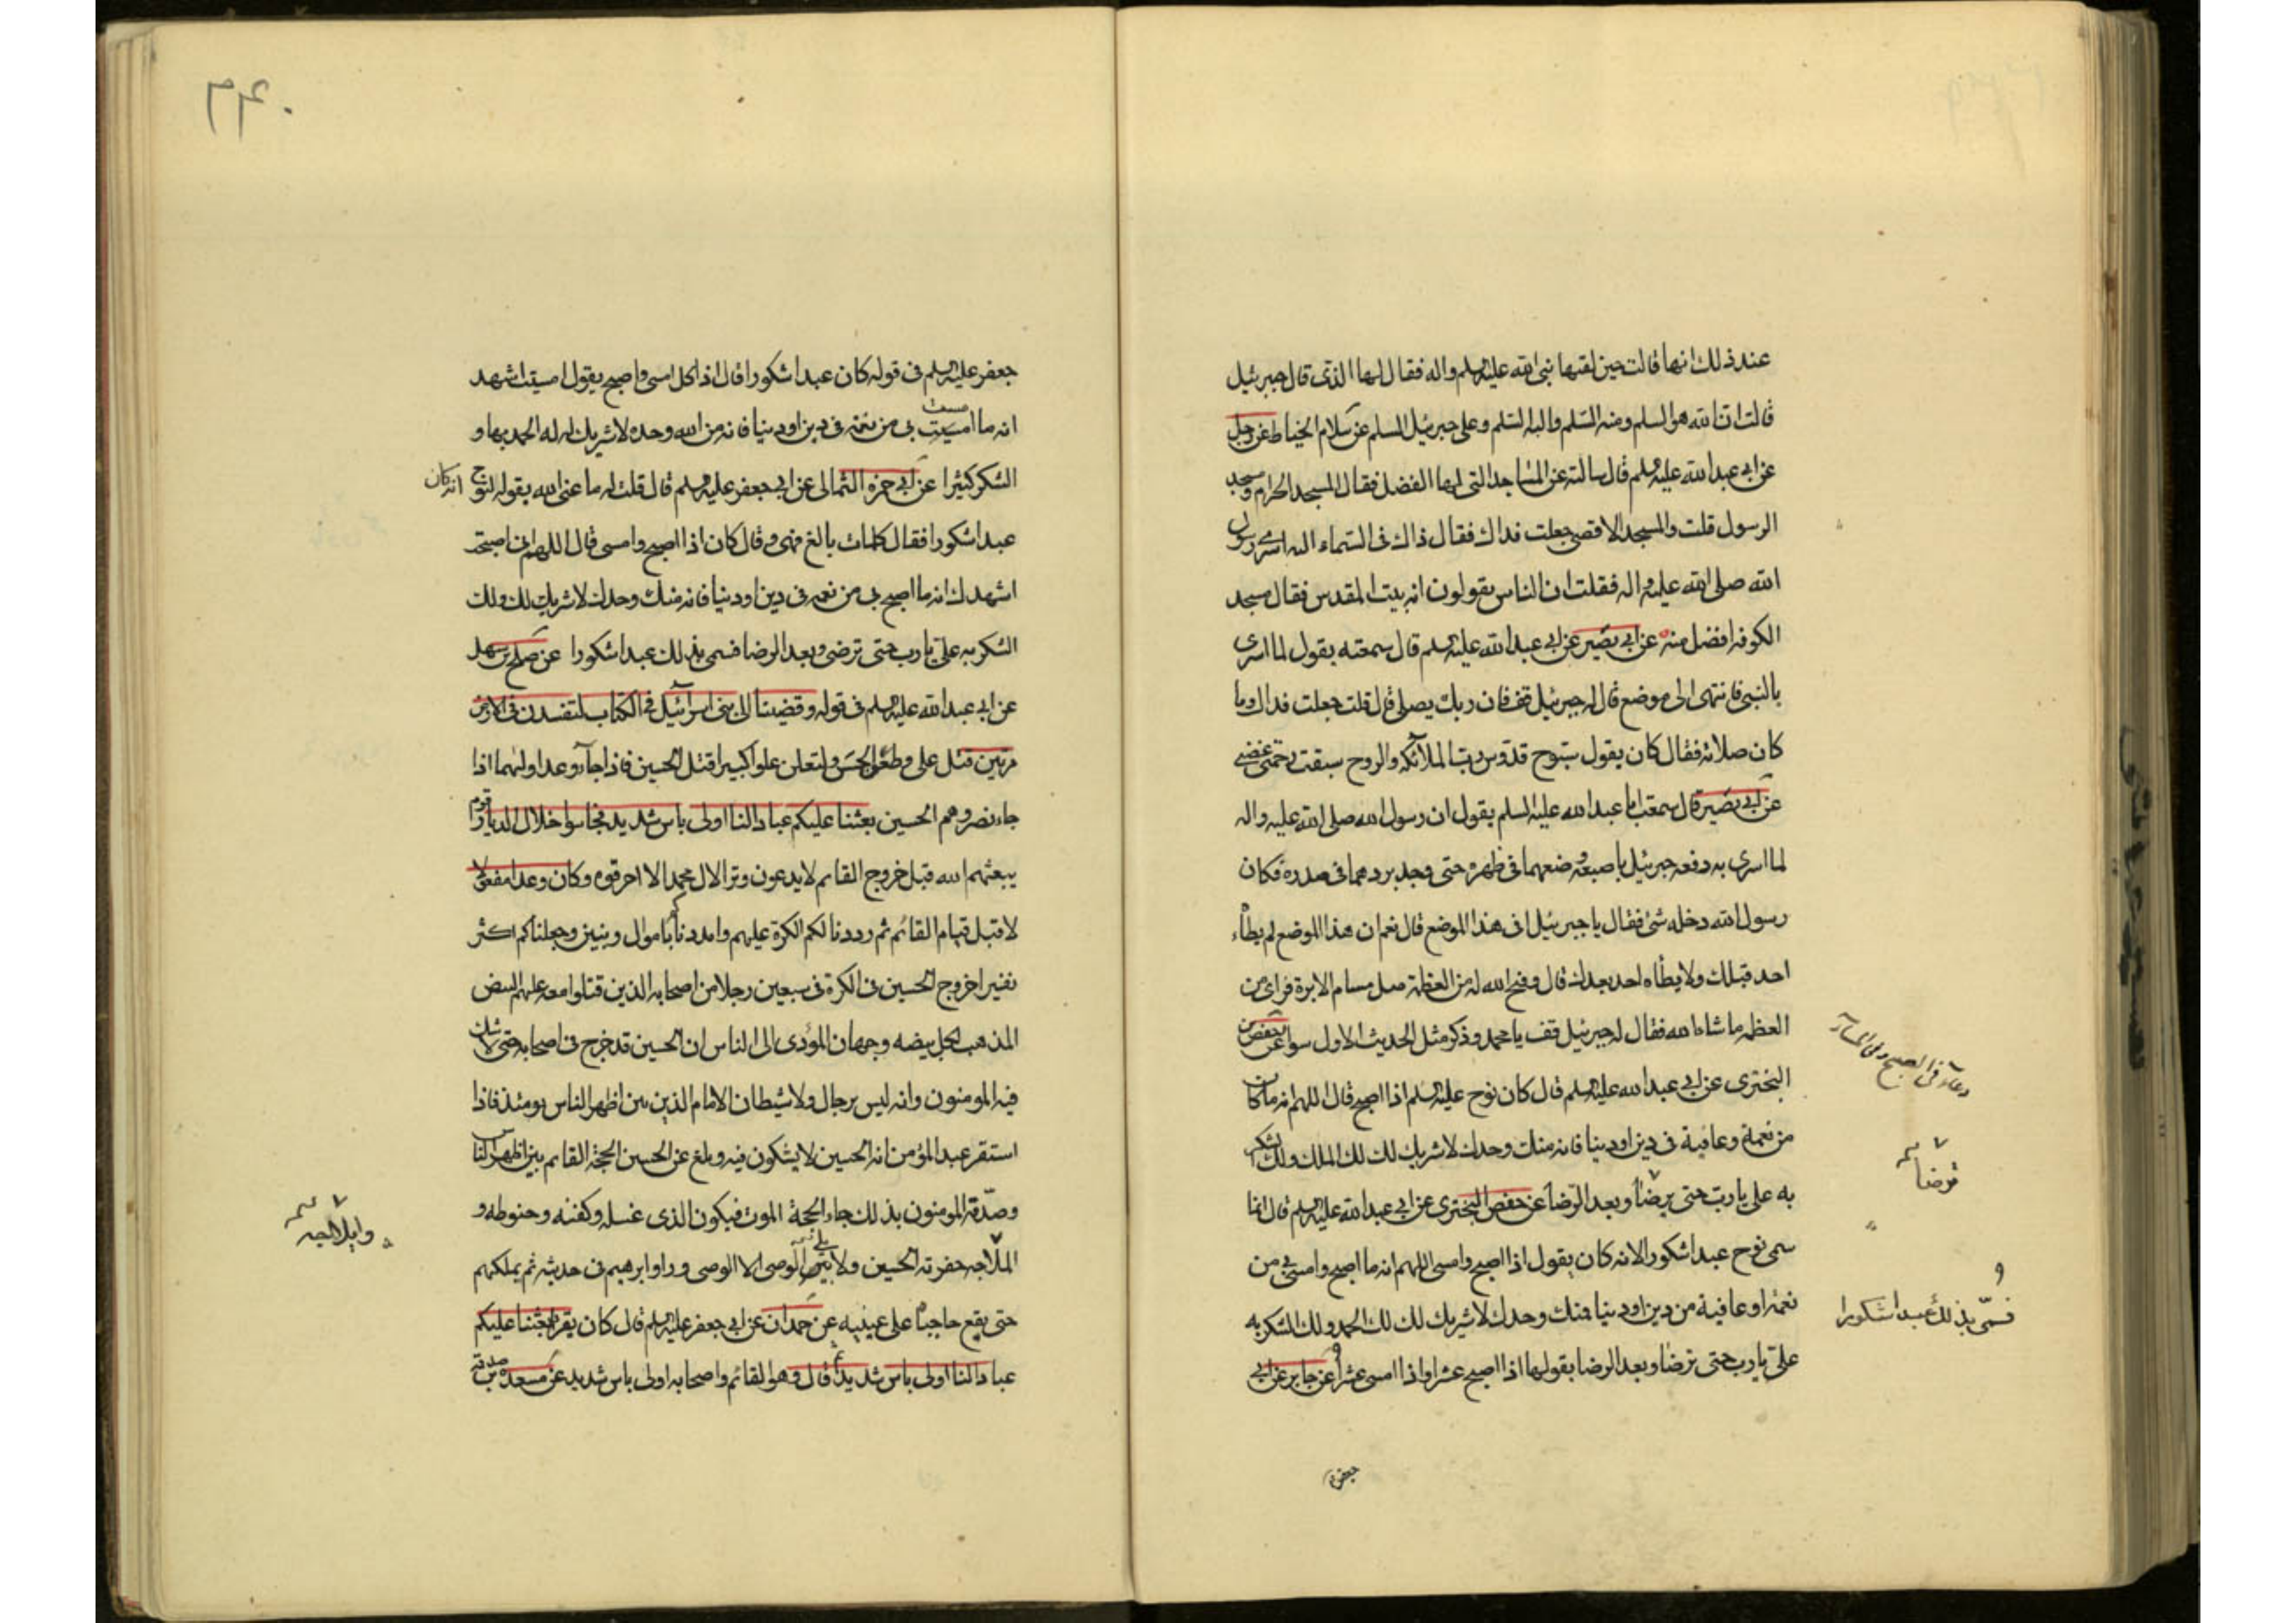 عند ذلك انها قالت حين لقتها نبى الله عليه السلم واله فقال لها الذى قال جبرئيل
قالت ان الله هو السلم ومنه السلم واليه السلم وعلى جبرئيل السلم عن سلام الخياط عن رجل
عن ابى عبد الله عليه السلم قال سالته عن المساجد التى لها الفضل فقال المسجد الحرام ومسجد
الرسول قلت والمسجد الاقصى جعلت فداك فقال ذاك فى السماء اليه اسرى رسول
الله صلى الله عليه واله فقلت ان الناس يقولون انه بيت المقدس فقال مسجد
الكوفه افضل منه عن ابى بصير عن ابى عبد الله عليه السلم قال سمعته يقول لما اسرى
بالنبى فانتهى الى موضع قال له جبرئيل قف فان ربك يصلى قال قلت جعلت فداك وما
كان صلاته فقال كان يقول سبوح قدوس رب الملائكه والروح سبقت رحمتى غضبى
عن ابى بصير قال سمعت ابا عبد الله عليه السلم يقول ان رسول الله صلى الله عليه واله
لما اسرى به دفعه جبرئيل باصبعه وضعهما فى ظهره حتى وجد بردهما فى صدره فكان
رسول الله دخله شئ فقال يا جبرئيل افى هذا الموضع قال نعم ان هذا الموضع لم يطأه
احد قبلك ولا يطأه احد بعدك قال وفتح الله له من العظمة مثل مسام الابرة فراى من
العظمه ما شاء الله فقال له جبرئيل قف يا محمد وذكر مثل الحديث الاول سوا عن حفص بن
البخترى عن ابى عبد الله عليه السلم قال كان نوح عليه السلم اذا اصبح قال اللهم انه ما كان
من نعمة وعافية فى دين او دنيا فانه منك وحدك لا شريك لك لك الملك ولك الشكر
به على يا رب حتى يرضا وبعد الرضا عن حفص البخترى عن ابى عبد الله عليه السلم قال انما
سمى نوح عبدا شكورا لانه كان يقول اذا اصبح وامسى اللهم انه ما اصبح وامسى بى من
نعمة او عافية من دين او دنيا منك وحدك لا شريك لك لك الحمد ولك الشكر به
على يا رب حتى ترضا وبعد الرضا يقولها اذا اصبح عشرا واذا امسى عشرا عن جابر عن ابى
دعاء فى الصبح وفى المساء
ترضا
فسمى بذلك عبدا شكورا
جعفر
۴۴۰
جعفر عليه السلم فى قوله كان عبدا شكورا قال اذا كل امسى واصبح يقول امسيت اشهد
انه ما امسيت بى من نعمة فى دين او دنيا فانه من الله وحده لا شريك له له الحمد بها و
الشكر كثيرا عن ابى حمزه الثمالى عن ابى جعفر عليه السلم قال قلت له ما عنى الله بقوله لنوح انه كان
عبدا شكورا فقال كلمات بالغ فيهن وقال كان اذا اصبح وامسى قال اللهم انى اصبحت
اشهدك انه ما اصبح بى من نعمه فى دين او دنيا فانه منك وحدك لا شريك لك ولك
الشكر به على يا رب حتى ترضى وبعد الرضا فسمى بذلك عبدا شكورا عن صالح بن سهل
عن ابى عبد الله عليه السلم فى قوله وقضينا الى بنى اسرائيل فى الكتاب لتفسدن فى الارض
مرتين قتل على وطعن الحسن ولتعلن علوا كبيرا قتل الحسين فاذا جاء وعد اولهما اذا
جاء نصر وهم الحسين بعثنا عليكم عبادا لنا اولى باس شديد فجاسوا خلال الديار قوم
يبعثهم الله قبل خروج القايم لا يدعون وترا لال محمد الا احرقوه وكان وعدا مفعولا
لا قبل قيام القائم ثم رددنا لكم الكرة عليهم وامددناكم باموال وبنين وجعلناكم اكثر
نفيرا خروج الحسين فى الكرة فى سبعين رجلا من اصحابه الذين قتلوا معه عليهم البيض
المذهب لكل بيضه وجهان المؤدى الى الناس ان الحسين قد خرج فى اصحابه حتى لا يشك
فيه المومنون وانه ليس برجال ولا شيطان الامام الذين بين اظهر الناس يومئذ فاذا
استقر عبد المؤمن انه الحسين لا يشكون فيه وبلغ عن الحسين الحجة القايم بين اظهر الناس
وصدقه المومنون بذلك جاء الحجة الموت فيكون الذى غسله وكفنه وحنوطه و
الملاجه حفرته الحسين ولا يلى الوصى الا الوصى وراو ابرهيم فى حديثه ثم يملكهم
حتى يقع حاجباه على عينيه عن حمران عن ابى جعفر عليه السلم قال كان يقرا بعثنا عليكم
عبادا لنا اولى باس شديد قال وهو القائم واصحابه اولى باس شديد عن مسعده بن صدقه
وايلاجه